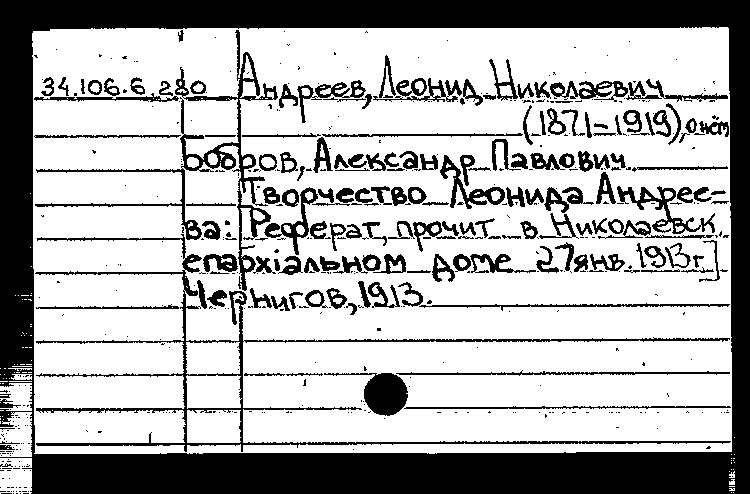 34.106.6.280 Андреев, Леонид Николаевич
(1871-1919), о нём
Бобров, Александр Павлович
Творчество Леонида Андрее-
ва: Реферат, прочит в Николаевск
епархіальном доме 27 янв. 1913г]
Чернигов, 1913.